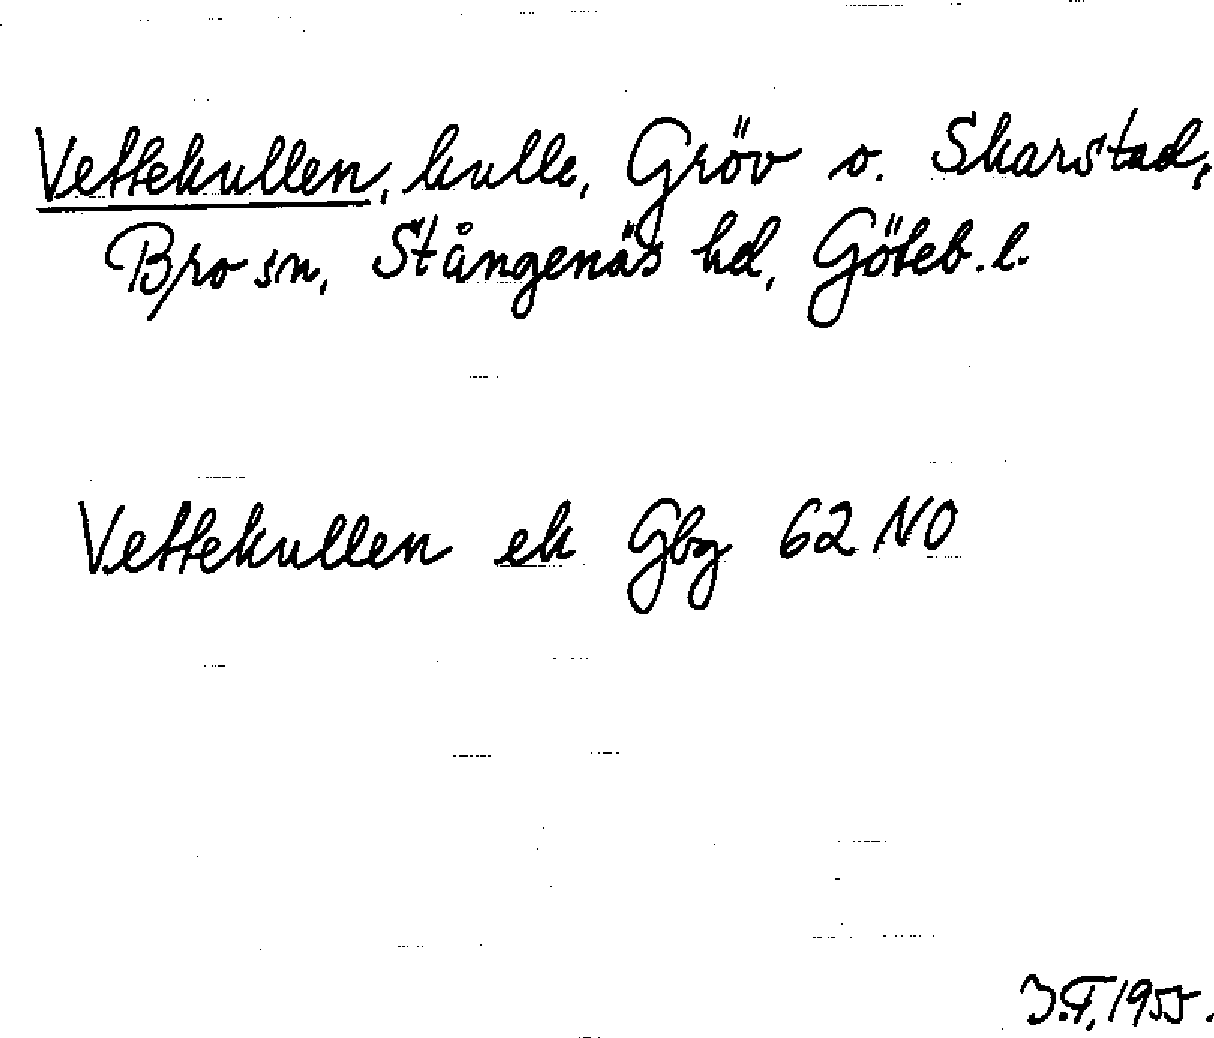 Vettekullen, kulle, Gröv o. Skarstad,
Bro sn, Stångenäs hd, Göteb. l.
Vettekullen ek Gbg 62 NO
J.T, 1955.